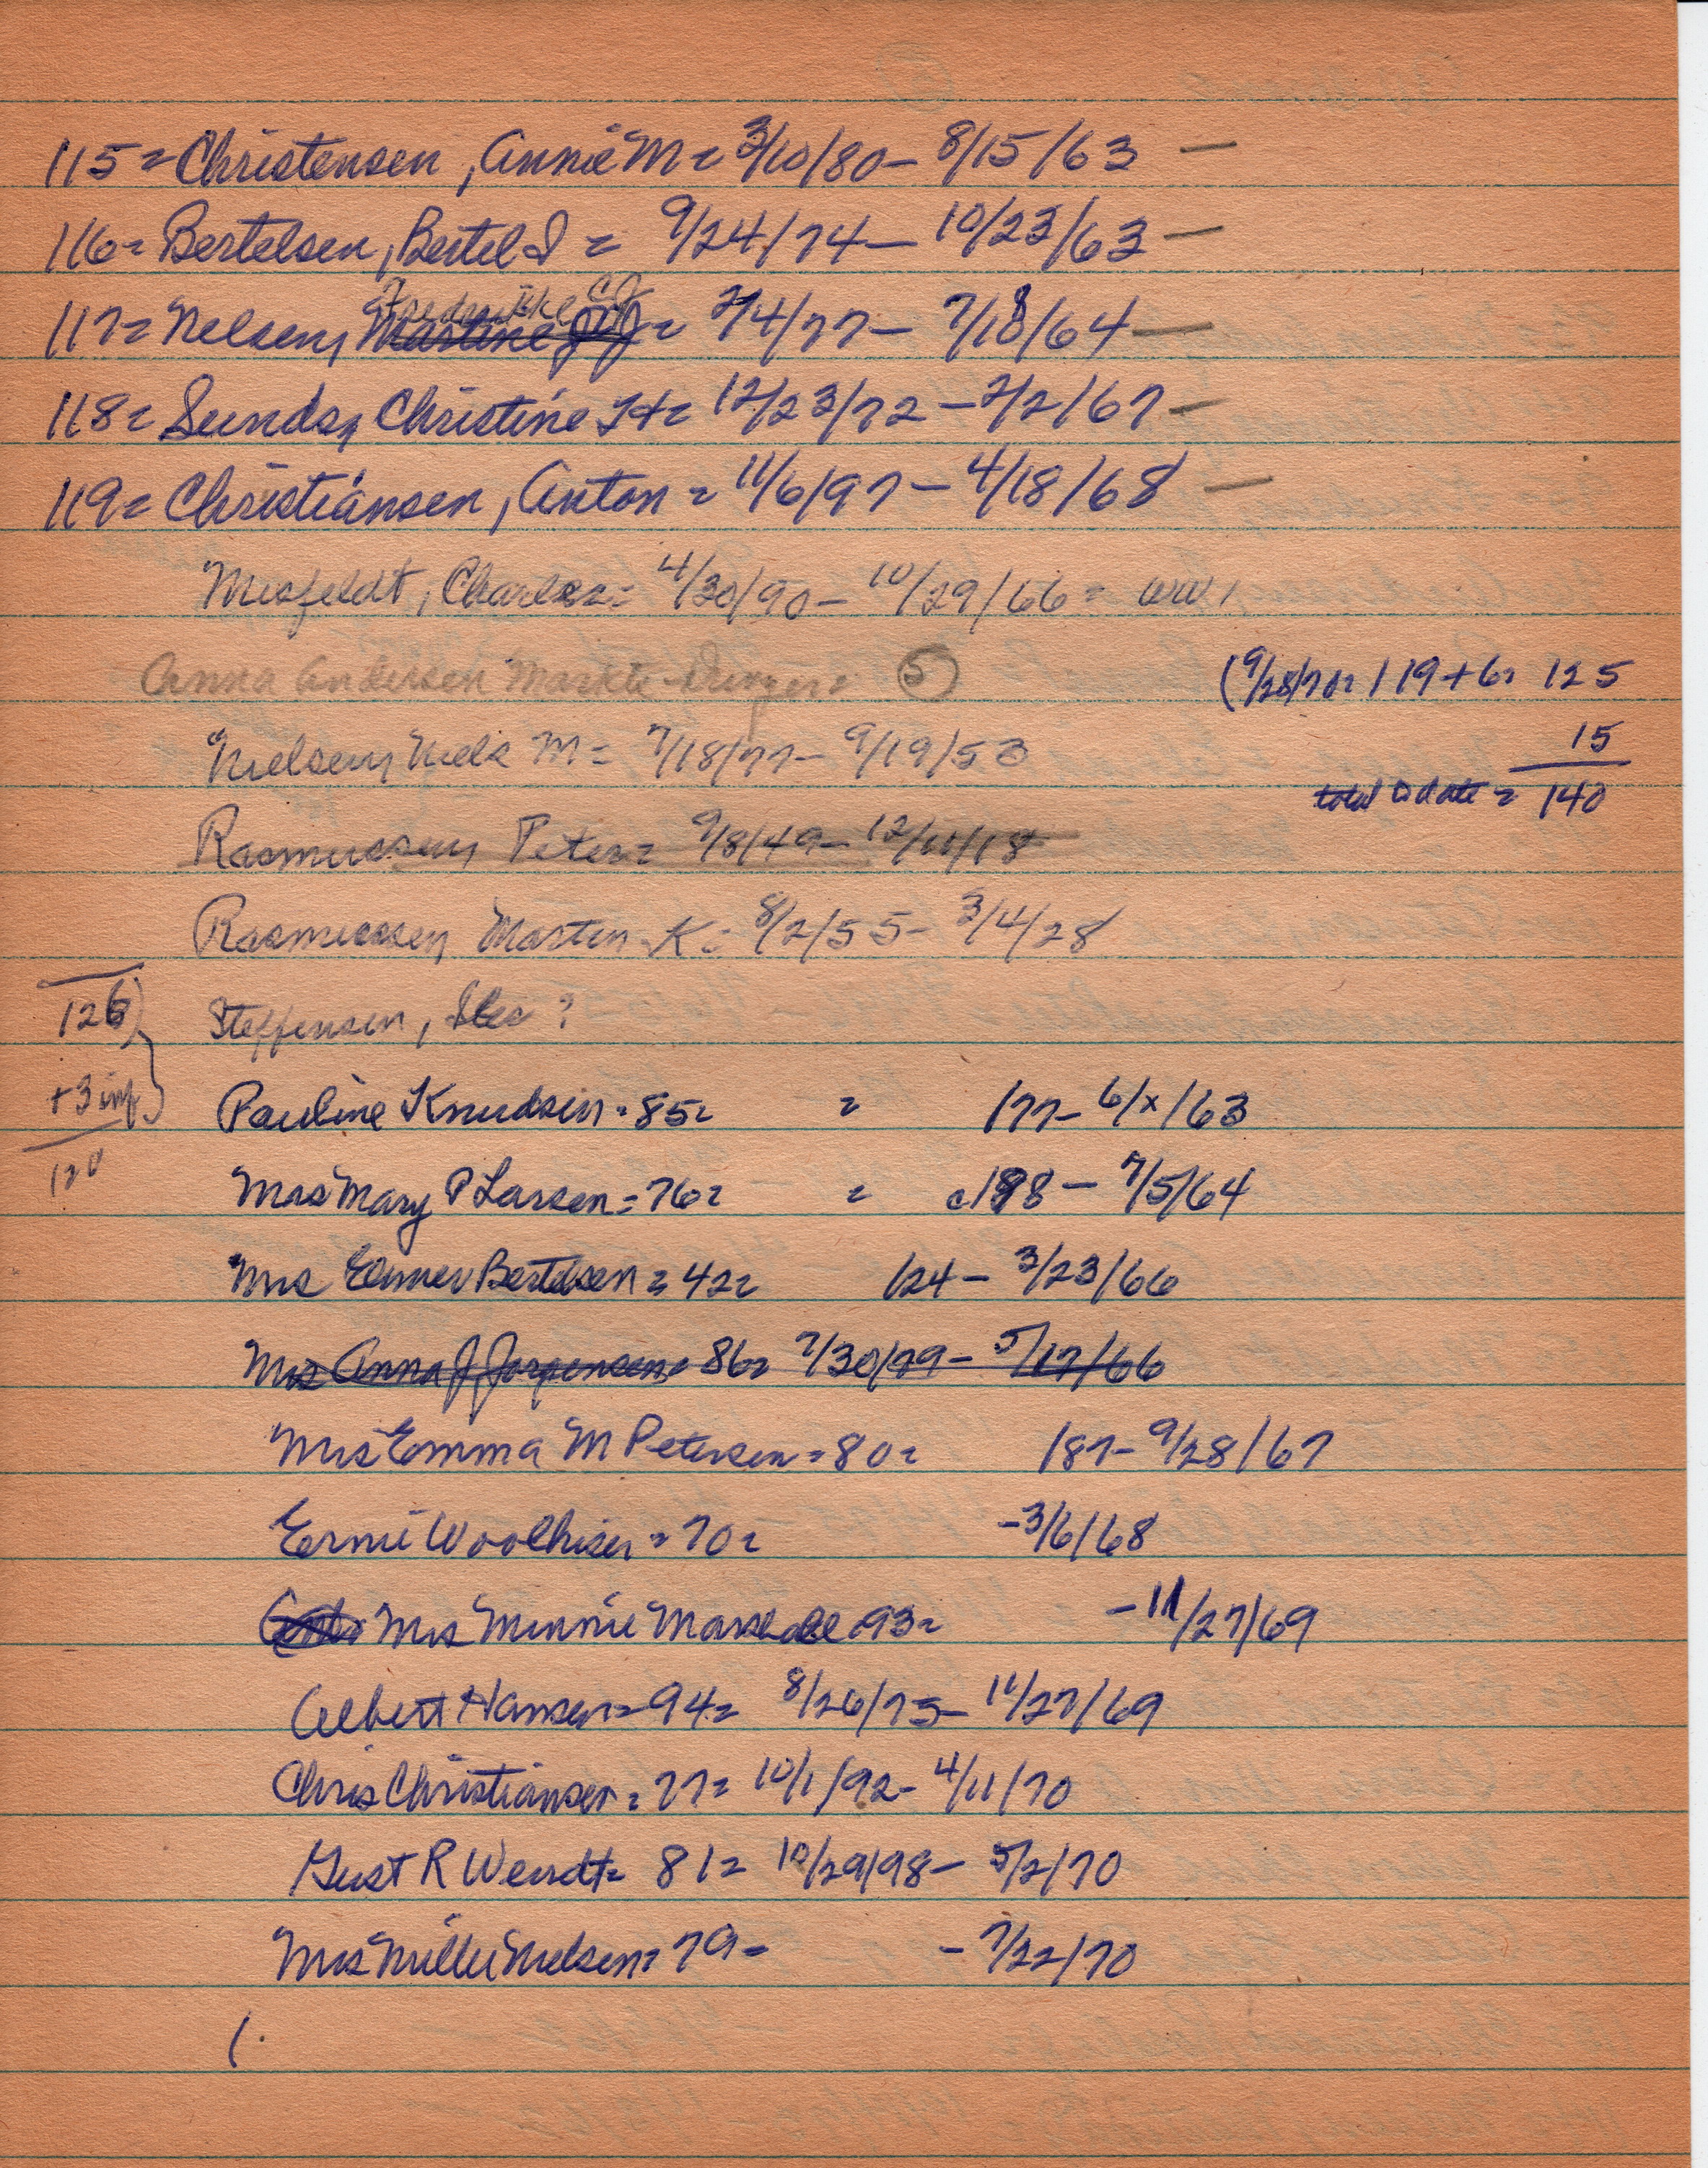 115 = Christensen, Annie M = 3/10/80 - 8/15/63 —
116 = Bertelsen, Bertel S = 9/24/74 - 10/23/63 —
Frederikke CJ
117 = Nelsen, Martine JJ = 2/4/77 - 7/18/64 —
118 = Sunds, Christine H = 12/23/72 - 2/2/67 —
119 = Christiansen, Anton = 11/6/97 - 4/18/68 —
Misfeldt, Charles = 4/30/90 - 10/29/66 = WW1
Anna Andersen Markte - = (5)
(9/28/70 = 119 + 6 = 125
Nielsen, Niels M = 7/18/77 - 9/19/53
15
total to date = 140
Rasmussen, Peter = 9/8/49 - 12/11/18
Rasmussen, Martin K = 8/2/55 - 3/4/28
126) Steffensen, ?
+3 inf) Pauline Knudsen = 85 = = /77 - 6/x/63
Mrs Mary P Larsen = 76 = = c 188 - 7/5/64
Mrs Elmer Bertelsen = 42 = /24 - 3/23/66
Mrs Anna J Jorgensen = 86 = 7/30/79 - 5/17/66
Mrs Emma M Petersen = 80 = /87 - 9/28/67
Ernie Woolhiser = 70 = - 3/6/68
Mrs Minnie Marshall = 93 = - 11/27/69
Albert Hansen = 94 = 8/26/75 - 11/27/69
Chris Christiansen = 77 = 10/1/92 - 4/11/70
Gust R Wendt = 81 = 10/29/98 - 5/2/70
Mrs Millie Nielsen = 79 = - 7/22/70
(.